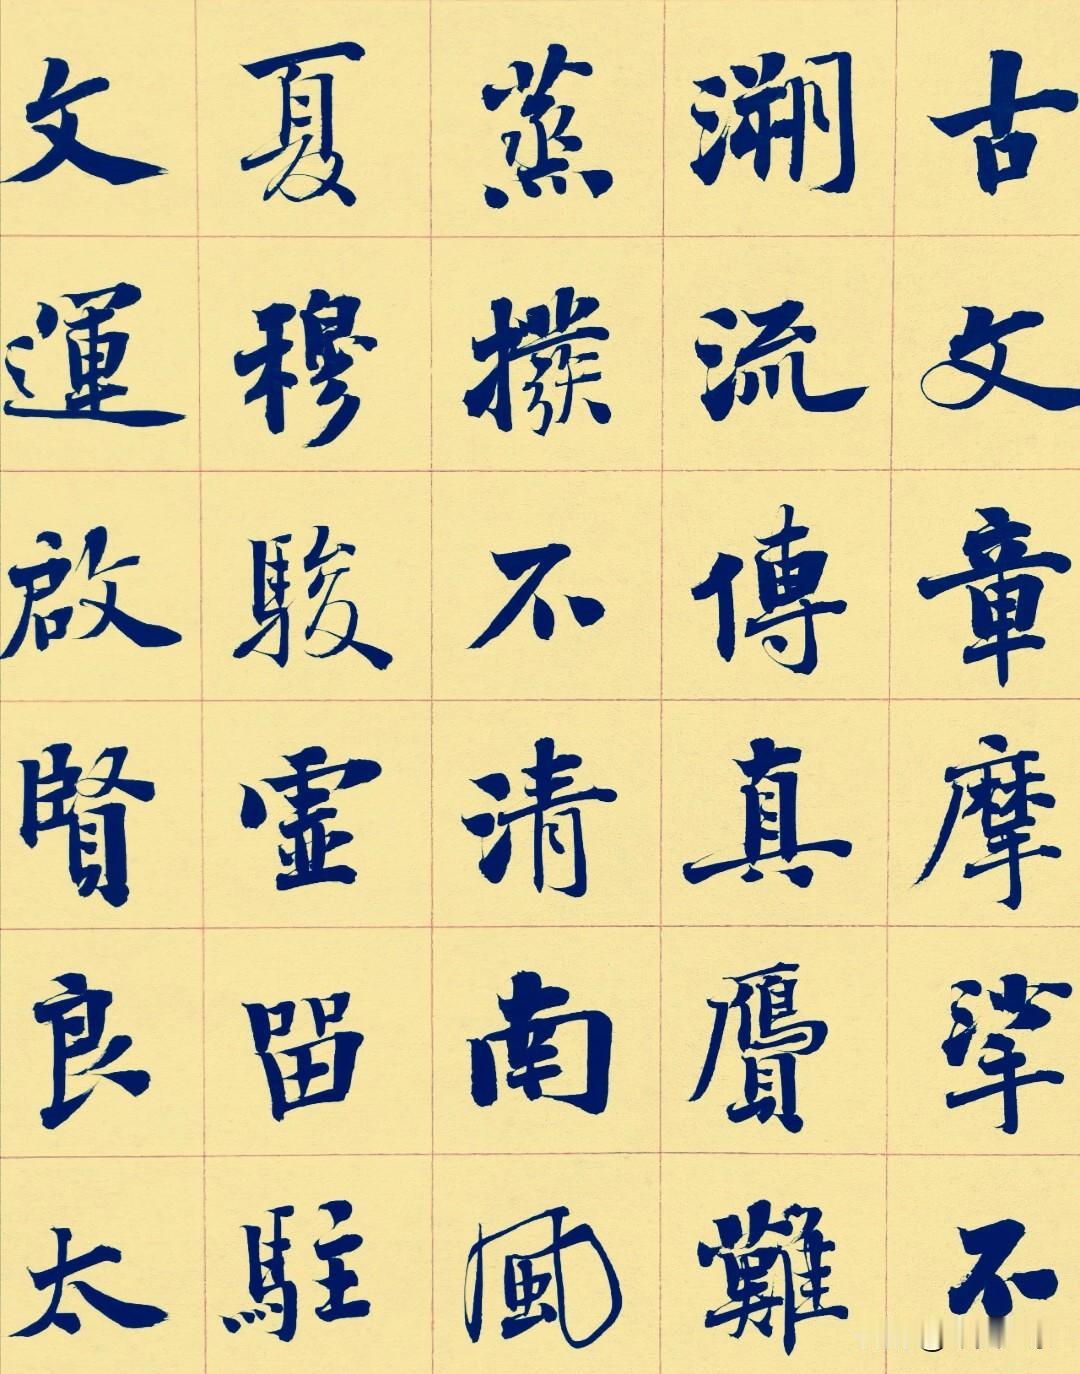 古文章摩挲不
溯流傳真贗難
蒸撥不清南風
夏穆駿霊留駐
文運啟賢良太